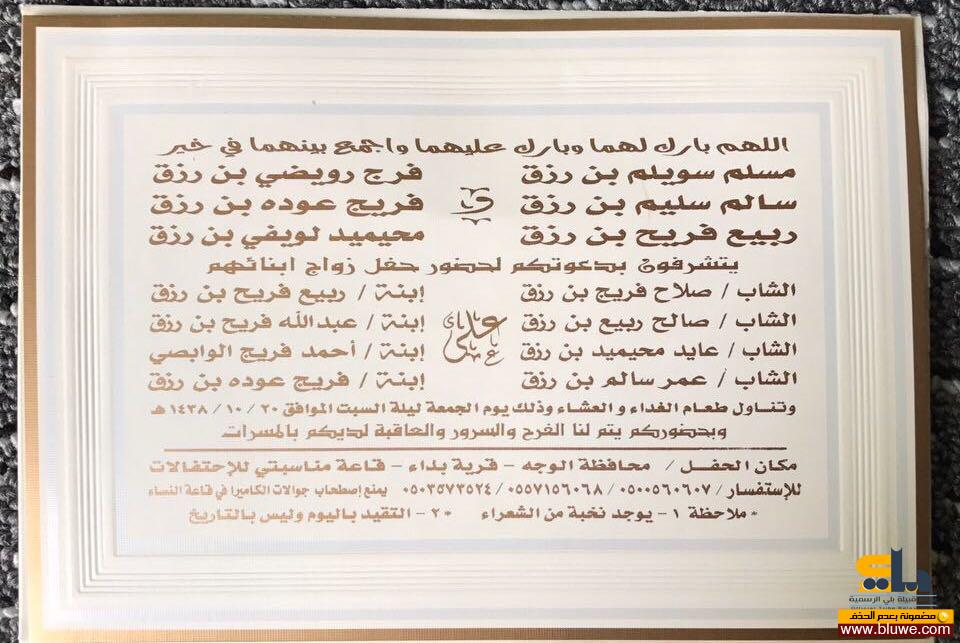 اللهم بارك لهما وبارك عليهما واجمع بينهما في خير
مسلم سويلم بن رزق و فرج رويضي بن رزق
سالم سليم بن رزق فريج عوده بن رزق
ربيع فريح بن رزق محيميد لويفي بن رزق
يتشرفون بدعوتكم لحضور حفل زواج ابنائهم
الشاب / صلاح فريج بن رزق على إبنة / ربيع فريح بن رزق
الشاب / صالح ربيع بن رزق إبنة / عبدالله فريح بن رزق
الشاب / عايد محيميد بن رزق إبنة / أحمد فريج الوابصي
الشاب / عمر سالم بن رزق إبنة / فريج عوده بن رزق
وتناول طعام الغداء و العشاء وذلك يوم الجمعة ليلة السبت الموافق ٢٠ / ١٠ / ١٤٣٨ هـ
وبحضوركم يتم لنا الفرح والسرور والعاقبة لديكم بالمسرات
مكان الحفل / محافظة الوجه - قرية بداء - قاعة مناسبتي للإحتفالات
للإستفسار / ٠٥٠٠٥٦٠٦٠٧ / ٠٥٥٧١٥٦٠٦٨ / ٠٥٠٣٥٧٣٥٢٤ يمنع إصطحاب جوالات الكاميرا في قاعة النساء
* ملاحظة ١ - يوجد نخبة من الشعراء * ٢ - التقيد باليوم وليس بالتاريخ
بلي
قبيلة بلي الرسمية
مضمونة بعدم الحذف
www.bluwe.com